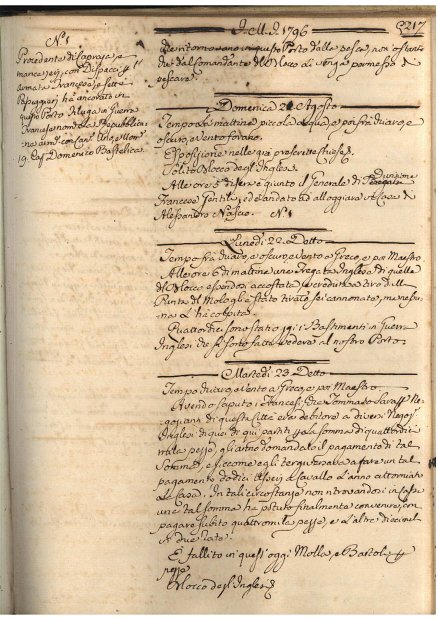 I. M. I. 1796
217
N.º 1
Procedente di Capraja, e
Francesi, con Dispacci
armata Francese, e sette
Passeggeri ha ancorato in
questo Porto Feluga in Guerra
Francese nom. La Repubblica
19. Cap. Domenico Bastelica
ritornano in questo Porto dalla pesca, non ostante
che dal Comandante del Blocco venga permesso
pescare.
Domenica 21 Agosto
Tempo la mattina piccola acqua, e poi fra chiaro, e
oscuro, e Vento forano.
Esposizione nelle già prescritte Chiese.
Solito Blocco degl'Inglesi.
Alle ore 5 di sera è giunto il Generale di Divisione
Francese Gentili, ed è andato ad alloggiare
Alessandro N.º 1
Lunedi 22. Detto
Tempo fra chiaro, e oscuro, e Vento a Greco, e poi Maestro
Alle ore 6 di mattina una Fregata Inglese di quelle
del Blocco essendosi accostata
Punta del Molo gli è stato tirato sei cannonate, ma
l'ha colpita.
Quattordici sono stati oggi i Bastimenti in Guerra
Inglesi che si sono fatti vedere al nostro Porto.
Martedi 23 Detto
Tempo chiaro, e Vento a Greco, e poi Maestro.
Avendo saputo i Francesi, che Tommaso
di questa Città era debitore a diversi Negoz.
Inglesi di quei di qui partiti la somma di quattordici
mila pezze, gli hanno domandato il pagamento di tal
Somma, e siccome egli tergiversava a fare un tal
pagamento dodici a Cavallo l'anno attorniata
la Casa. In tali circostanze non trovandosi in Cassa
una tal somma ha potuto finalmente convenire, con
pagare subito quattromila pezze, e l'altre diecimila
due rate.
È fallito in quest'oggi Molla, e Bartoli
pezze
Blocco degl'Inglesi